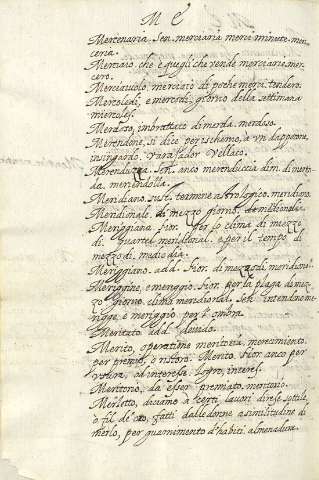 M E
Mercenaria. Sen. merciaria merci minute. mer
ceria.
Merciaio, che è quegli che vende merciarie. mer
cero.
Merciaiuolo, merciaro di poche merci. tendero.
Mercoledì, e mercore, giorno della settimana
miercoles.
Merdoso, imbrattato di merda. merdoso.
Merendone, si dice per ischerno, à un dappoccone,
insingardo. Vellaco.
Merenduzza. Sen. anco merenduccia dim. di merē
da. meriendilla.
Meridiano, sust. termine Astrologico. meridiano.
Meridionale, di mezzo giorno. meridional.
Meriggiana Fior. per lo clima di mezzo
dì. Quartel meridional. e per il tempo di
mezzo dì. mediodia.
Meriggiano. add. Fior. di mezzodì. meridional.
Meriggine, e meriggio. Fior. per la plaga di mez
zo giorno. clima meridional. Sen. intendono me
rigge, e meriggio per l'ombra.
Meritato add. devido.
Merito, operatione meritoria. merecimiento.
per premio, ò ristoro. Merito. Fior. anco per
vsura, ed interesse. logro, interes.
Meritorio, da esser premiato. meritorio.
Merletto, diciamo à certi lavori di refe sottile,
ò fil d'oro, fatti dalle donne à similitudine di
merlo, per guarnimento d'habiti. almenadura.